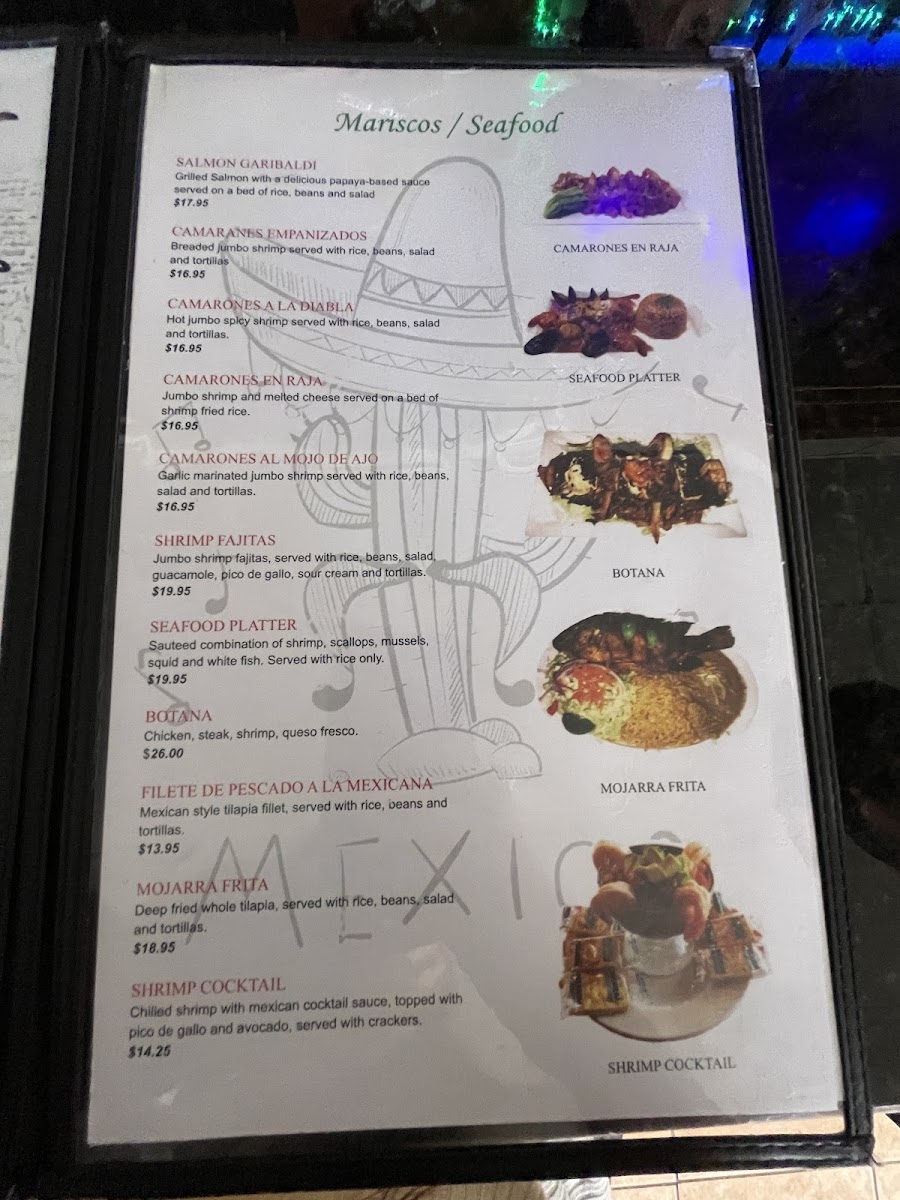 Mariscos / Seafood
SALMON GARIBALDI
Grilled Salmon with a delicious papaya-based sauce
served on a bed of rice, beans and salad
$17.95
CAMARANES EMPANIZADOS
Breaded jumbo shrimp served with rice, beans, salad
and tortillas
$16.95
CAMARONES A LA DIABLA
Hot jumbo spicy shrimp served with rice, beans, salad
and tortillas.
$16.95
CAMARONES EN RAJA
Jumbo shrimp and melted cheese served on a bed of
shrimp fried rice.
$16.95
CAMARONES AL MOJO DE AJO
Garlic marinated jumbo shrimp served with rice, beans,
salad and tortillas.
$16.95
SHRIMP FAJITAS
Jumbo shrimp fajitas, served with rice, beans, salad,
guacamole, pico de gallo, sour cream and tortillas.
$19.95
SEAFOOD PLATTER
Sauteed combination of shrimp, scallops, mussels,
squid and white fish. Served with rice only.
$19.95
BOTANA
Chicken, steak, shrimp, queso fresco.
$26.00
FILETE DE PESCADO A LA MEXICANA
Mexican style tilapia fillet, served with rice, beans and
tortillas.
$13.95
MOJARRA FRITA
Deep fried whole tilapia, served with rice, beans, salad
and tortillas.
$18.95
SHRIMP COCKTAIL
Chilled shrimp with mexican cocktail sauce, topped with
pico de gallo and avocado, served with crackers.
$14.25
CAMARONES EN RAJA
SEAFOOD PLATTER
BOTANA
MOJARRA FRITA
SHRIMP COCKTAIL
MEXICO